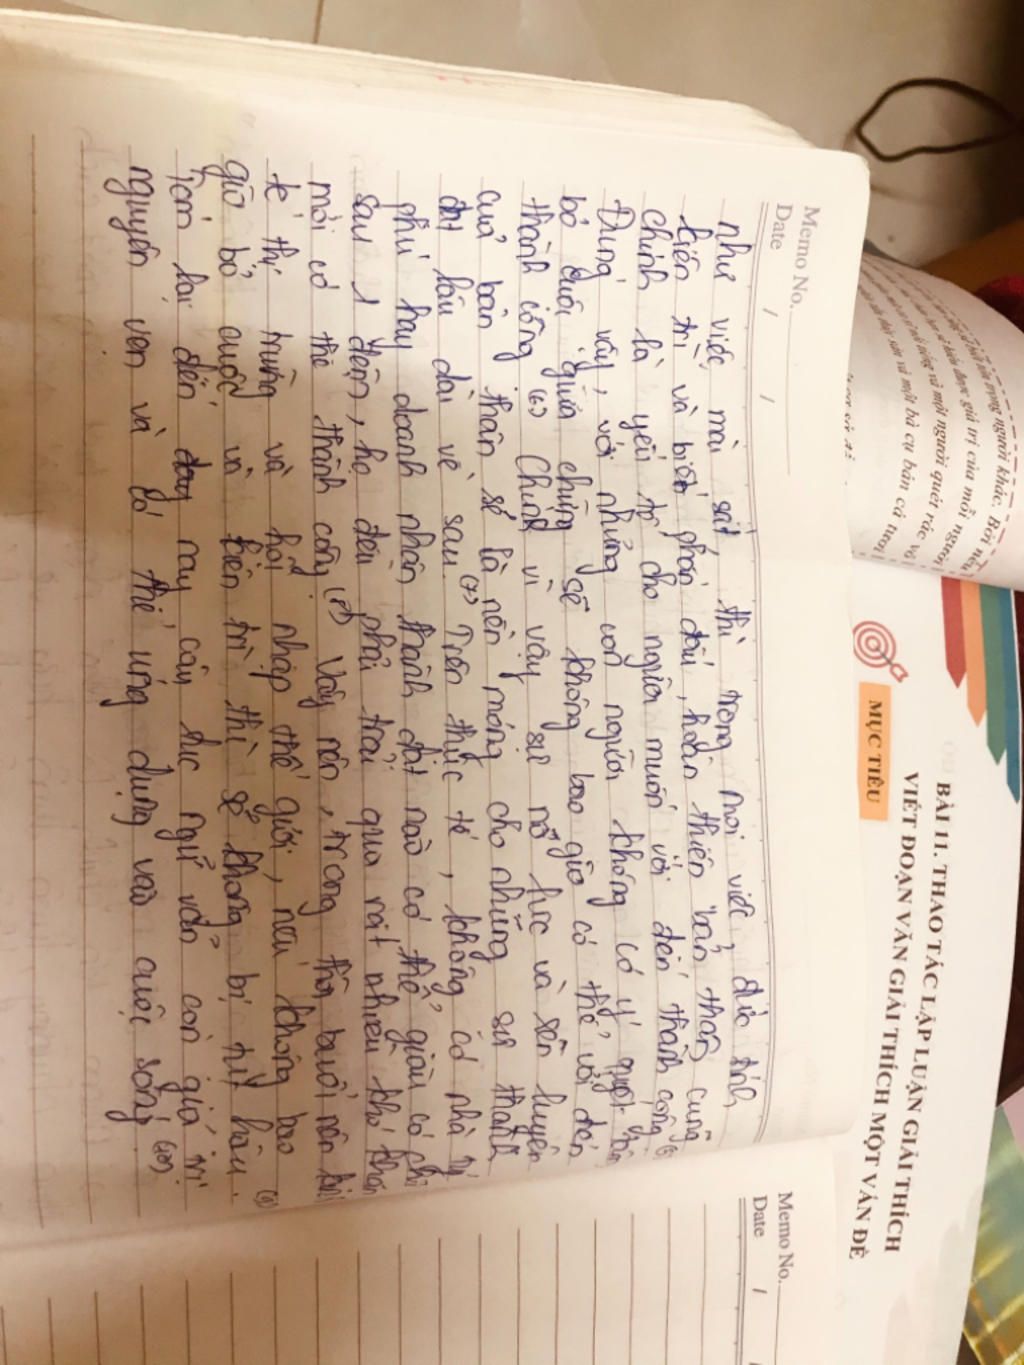 Memo No.
Date / /
như việc mài sắt, thì trong mọi việc, đức tính
kiên trì và biết phấn đấu, hoàn thiện bản thân cũng
chính là yếu tố cho người muốn với đến thành công (5)
Đúng vậy, với những con người không có ý
bỏ cuối giữa chừng sẽ không bao giờ có thể với đến
thành công (6) Chính vì vậy sự nỗ lực và rèn luyện
cuả bản thân sẽ là nền móng cho những sự thành
đạt lâu dài về sau. (7) Trên thực tế, không có nhà tỷ
phú hay doanh nhân thành đạt nào có thể giàu có chỉ
sau 1 đêm, họ đều phải trải qua rất nhiều khó khăn
mới có thể thành công. (8) Vậy nên, trong thời buổi nền kinh
tế thị trường và hội nhập thế giới, nếu không bao
giờ bỏ cuốc và kiên trì thì sẽ không bị tụt hậu. (9)
Tóm lại đến đay nay câu tục ngữ vẫn còn giá trị
nguyên vẹn và có thể ứng dụng vào cuộc sống (10).
Memo No.
Date /
BÀI 11. THAO TÁC LẬP LUẬN GIẢI THÍCH
VIẾT ĐOẠN VĂN GIẢI THÍCH MỘT VẤN ĐỀ
MỤC TIÊU
biết tôn trọng người khác. Bởi nếu
được giá trị của mỗi người
nổi tiếng và một người quét rác vô
thủy sản và một bà cụ bán cá nơi